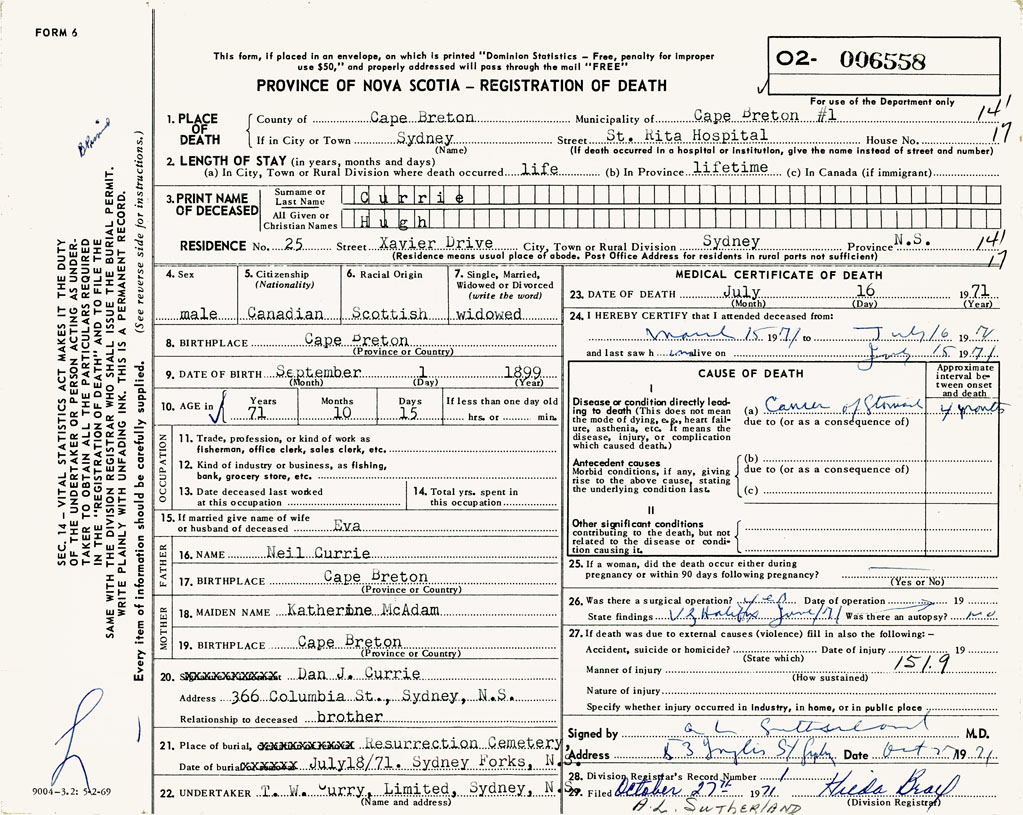 FORM 6
This form, if placed in an envelope, on which is printed "Dominion Statistics – Free, penalty for improper
use $50," and properly addressed will pass through the mail "FREE"
PROVINCE OF NOVA SCOTIA – REGISTRATION OF DEATH
O2- 006558
For use of the Department only
1. PLACE OF DEATH
County of Cape Breton Municipality of Cape Breton #1 14'
If in City or Town Sydney Street St. Rita Hospital House No. 17
(Name) (If death occurred in a hospital or institution, give the name instead of street and number)
2. LENGTH OF STAY (in years, months and days)
(a) In City, Town or Rural Division where death occurred life (b) In Province lifetime (c) In Canada (if immigrant)
3. PRINT NAME OF DECEASED
Surname or Last Name Currie
All Given or Christian Names Hugh
RESIDENCE No. 25 Street Xavier Drive City, Town or Rural Division Sydney Province N.S. 14'
(Residence means usual place of abode. Post Office Address for residents in rural parts not sufficient) 17
4. Sex
male
5. Citizenship
(Nationality)
Canadian
6. Racial Origin
Scottish
7. Single, Married,
Widowed or Divorced
(write the word)
widowed
8. BIRTHPLACE Cape Breton
(Province or Country)
9. DATE OF BIRTH September 1 1899
(Month) (Day) (Year)
10. AGE in Years Months Days If less than one day old
71 10 15 hrs. or min.
OCCUPATION
11. Trade, profession, or kind of work as
fisherman, office clerk, sales clerk, etc.
12. Kind of industry or business, as fishing,
bank, grocery store, etc.
13. Date deceased last worked
at this occupation
14. Total yrs. spent in
this occupation
15. If married give name of wife
or husband of deceased Eva
FATHER
16. NAME Neil Currie
17. BIRTHPLACE Cape Breton
(Province or Country)
MOTHER
18. MAIDEN NAME Katherine McAdam
19. BIRTHPLACE Cape Breton
(Province or Country)
20. Dan J. Currie
Address 366 Columbia St., Sydney, N.S.
Relationship to deceased brother
21. Place of burial, Resurrection Cemetery,
Date of burial July18/71. Sydney Forks, N.S.
22. UNDERTAKER T. W. Curry, Limited, Sydney, N.S.
(Name and address)
MEDICAL CERTIFICATE OF DEATH
23. DATE OF DEATH July 16 1971
(Month) (Day) (Year)
24. I HEREBY CERTIFY that I attended deceased from:
March 15 1971 to July 16 1971
and last saw h im alive on July 15 1971
CAUSE OF DEATH
Approximate
interval be-
tween onset
and death
I
Disease or condition directly lead-
ing to death (This does not mean
the mode of dying, e.g., heart fail-
ure, asthenia, etc. It means the
disease, injury, or complication
which caused death.)
(a) Cancer of Stomach 4 months
due to (or as a consequence of)
Antecedent causes
Morbid conditions, if any, giving
rise to the above cause, stating
the underlying condition last.
(b)
due to (or as a consequence of)
(c)
II
Other significant conditions
contributing to the death, but not
related to the disease or condi-
tion causing it.
25. If a woman, did the death occur either during
pregnancy or within 90 days following pregnancy?
(Yes or No)
26. Was there a surgical operation? yes Date of operation 19
State findings Halifax June/71 Was there an autopsy? no
27. If death was due to external causes (violence) fill in also the following: –
Accident, suicide or homicide? Date of injury 19
(State which) 151.9
Manner of injury
(How sustained)
Nature of injury
Specify whether injury occurred in industry, in home, or in public place
Signed by A L Sutherland M.D.
Address Date Oct 27 1971
28. Division Registrar's Record Number 1
29. Filed October 27th 1971 Hilda
(Division Registrar)
A.L. SUTHERLAND
SEC. 14 – VITAL STATISTICS ACT MAKES IT THE DUTY
OF THE UNDERTAKER OR PERSON ACTING AS UNDER-
TAKER TO OBTAIN ALL THE PARTICULARS REQUIRED
IN THE "REGISTRATION OF DEATH" AND TO FILE THE
SAME WITH THE DIVISION REGISTRAR WHO SHALL ISSUE THE BURIAL PERMIT.
WRITE PLAINLY WITH UNFADING INK. THIS IS A PERMANENT RECORD.
Every item of information should be carefully supplied. (See reverse side for instructions.)
9004–3.2: 5-2-69